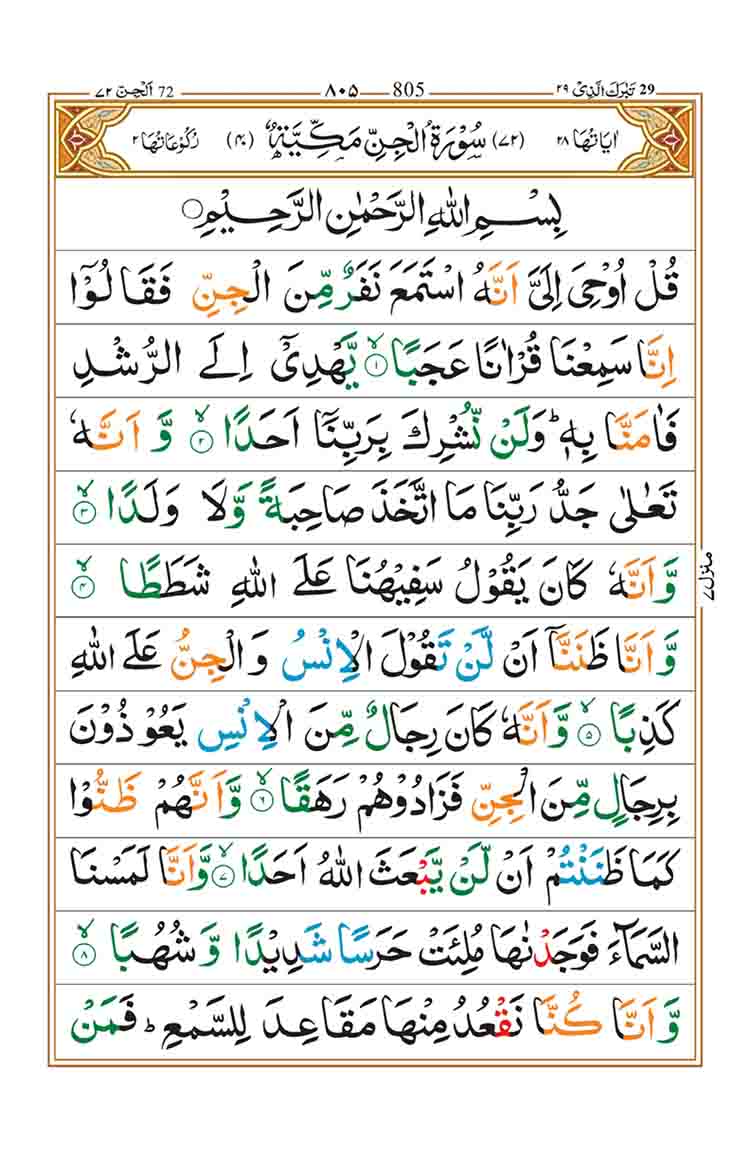 29 تَبٰرَكَ الَّذِىْ ٢٩ 805 ٨٠٥ 72 اَلْجِنّ ٧٢
اٰيَاتُهَا ٢٨ (٧٢) سُوْرَةُ الْجِنِّ مَكِّيَّةٌ (٤٠) رُكُوْعَاتُهَا ٢
بِسْمِ اللّٰهِ الرَّحْمٰنِ الرَّحِيْمِ
قُلْ اُوْحِىَ اِلَىَّ اَنَّهُ اسْتَمَعَ نَفَرٌ مِّنَ الْجِنِّ فَقَالُوْٓا
اِنَّا سَمِعْنَا قُرْاٰنًا عَجَبًا ۙ‏ ١ يَّهْدِىْٓ اِلَى الرُّشْدِ
فَاٰمَنَّا بِهٖ ؕ وَلَنْ نُّشْرِكَ بِرَبِّنَاۤ اَحَدًا ۙ ٢ وَّ اَنَّهٗ
تَعٰلٰى جَدُّ رَبِّنَا مَا اتَّخَذَ صَاحِبَةً وَّلَا وَلَدًا ۙ ٣
وَّاَنَّهٗ كَانَ يَقُوْلُ سَفِيْهُنَا عَلَى اللّٰهِ شَطَطًا ۙ ٤
وَّاَنَّا ظَنَنَّاۤ اَنْ لَّنْ تَقُوْلَ الْاِنْسُ وَالْجِنُّ عَلَى اللّٰهِ
كَذِبًا ۙ ٥ وَّاَنَّهٗ كَانَ رِجَالٌ مِّنَ الْاِنْسِ يَعُوْذُوْنَ
بِرِجَالٍ مِّنَ الْجِنِّ فَزَادُوْهُمْ رَهَقًا ۙ ٦ وَّاَنَّهُمْ ظَنُّوْا
كَمَا ظَنَنْتُمْ اَنْ لَّنْ يَّبْعَثَ اللّٰهُ اَحَدًا ۙ ٧ وَّاَنَّا لَمَسْنَا
السَّمَآءَ فَوَجَدْنٰهَا مُلِئَتْ حَرَسًا شَدِيْدًا وَّ شُهُبًا ۙ ٨
وَّاَنَّا كُنَّا نَقْعُدُ مِنْهَا مَقَاعِدَ لِلسَّمْعِ ؕ فَمَنْ
منزل ٧